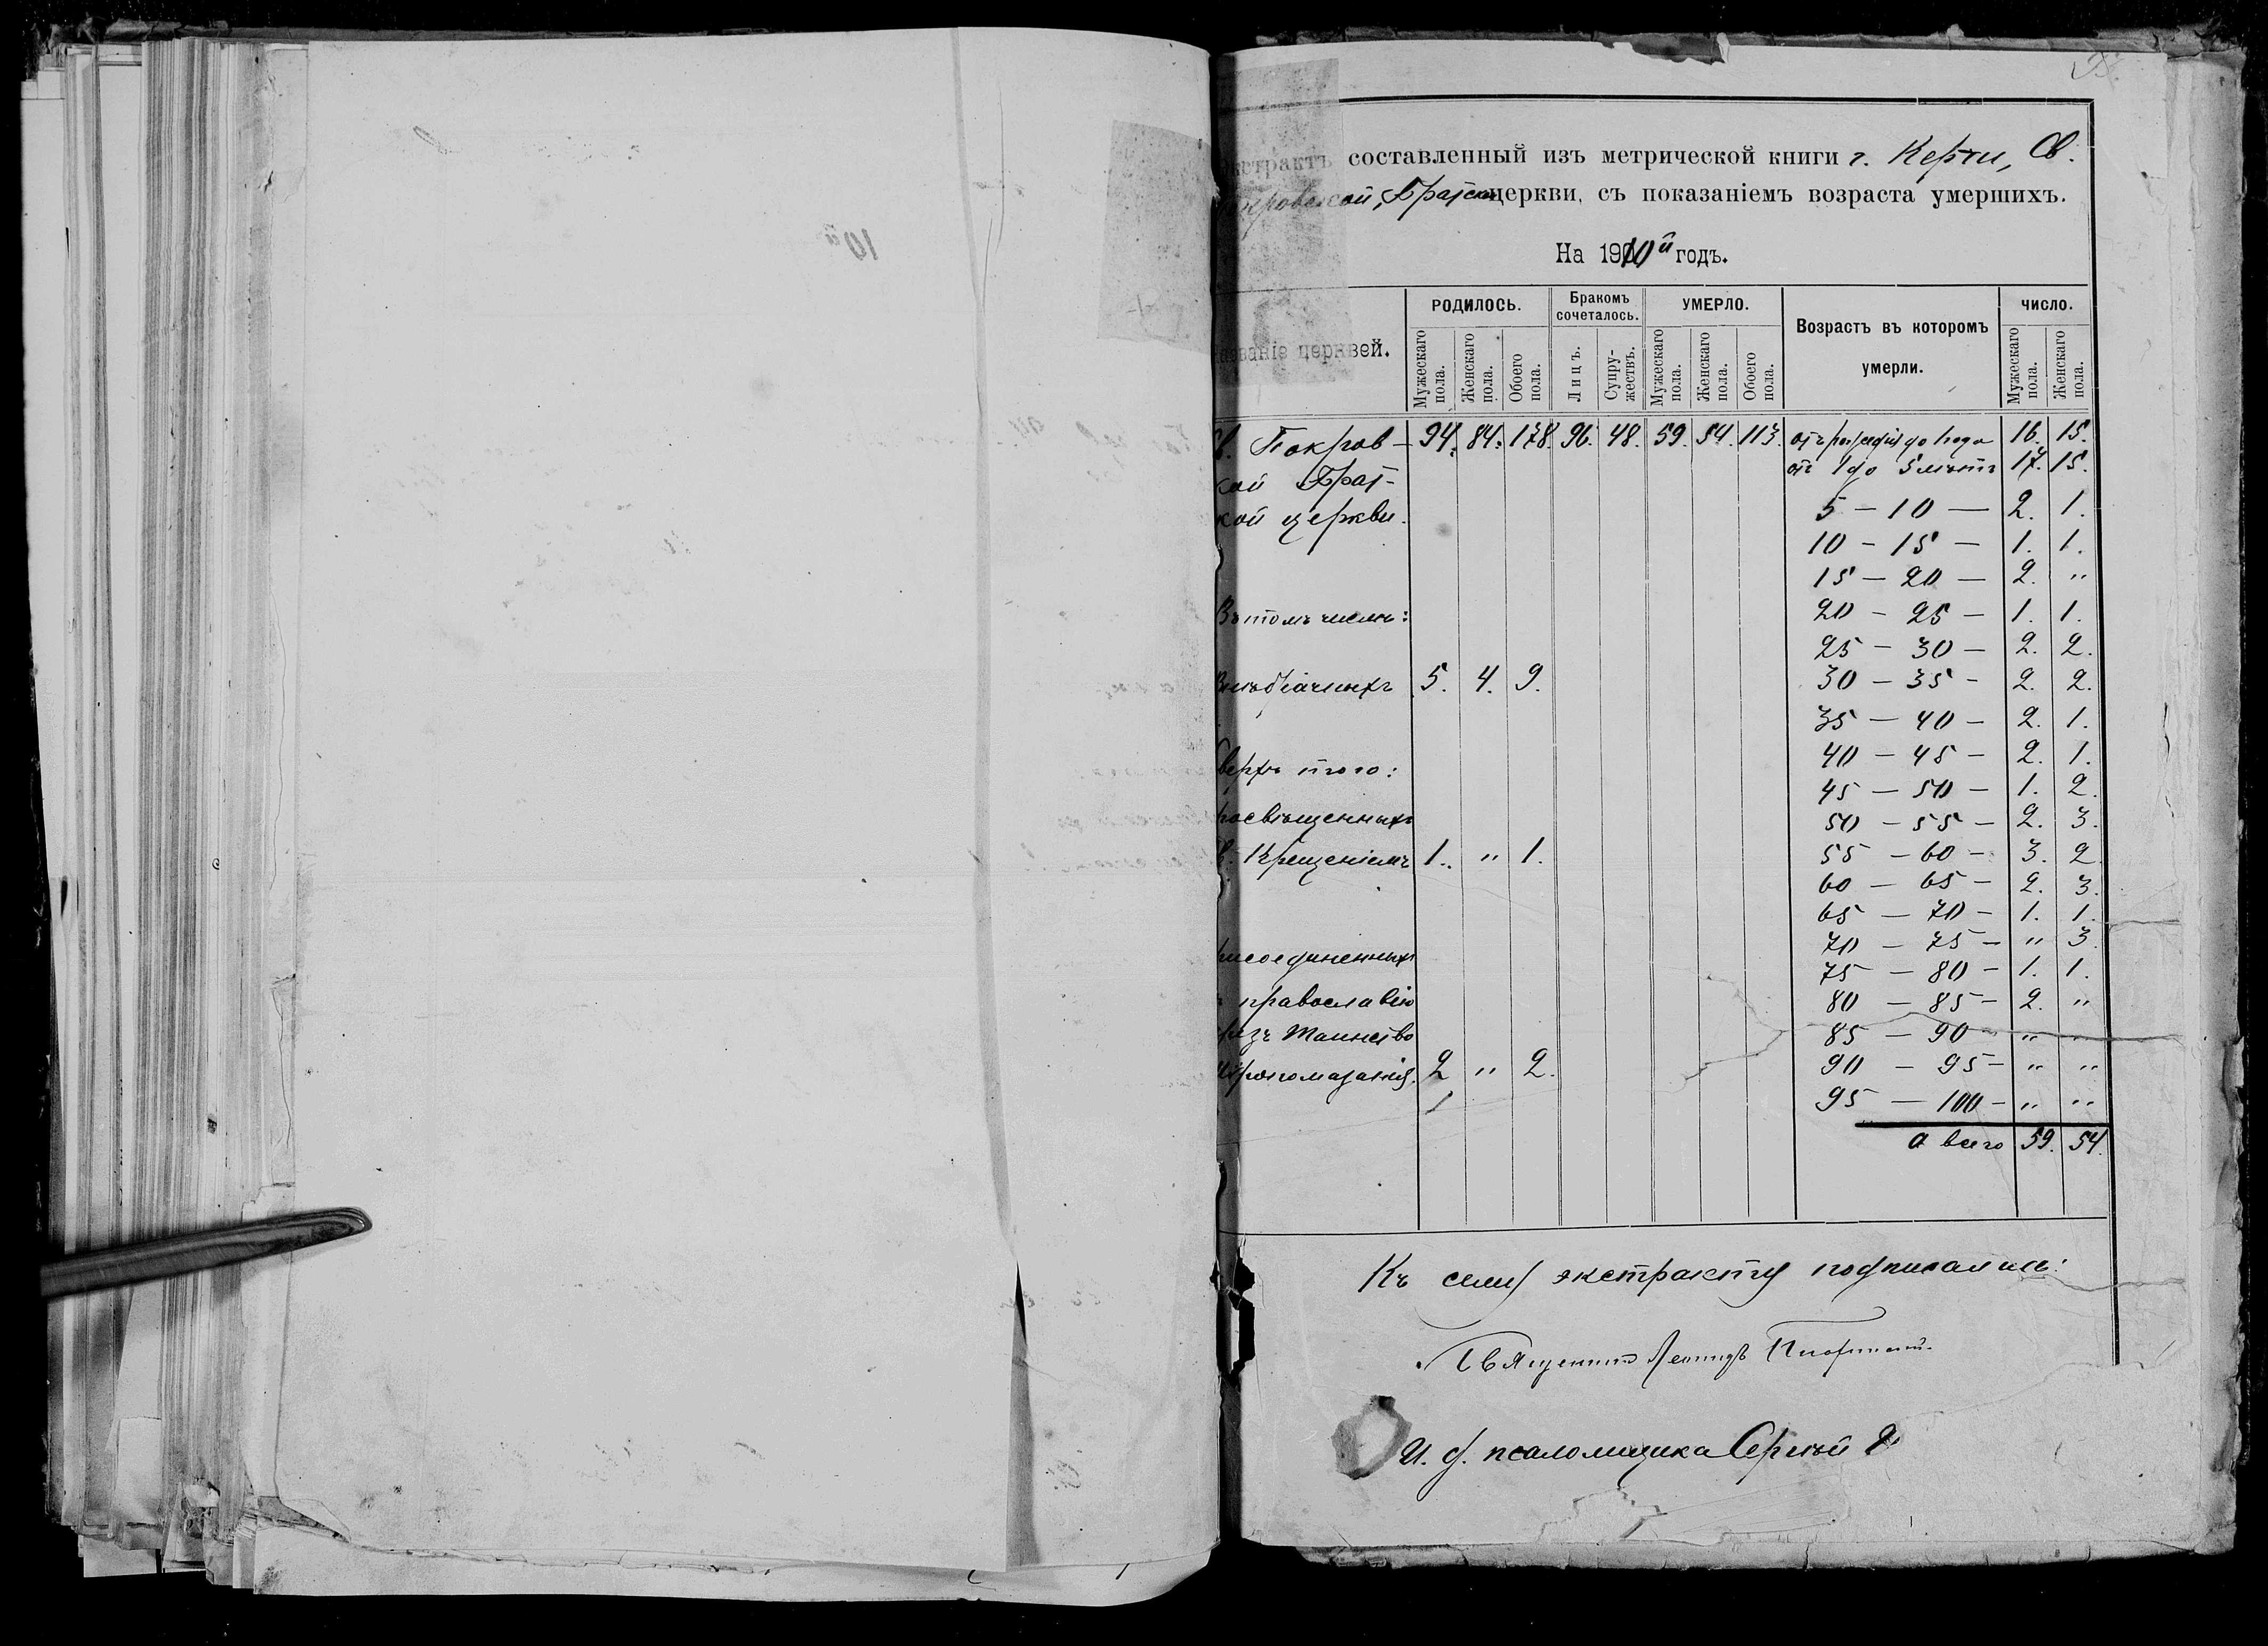 кстрактъ составленный изъ метрической книги г. Керчи, Св.
Покровской, Братск церкви, съ показаніемъ возраста умершихъ.
На 1910й годъ.
РОДИЛОСЬ. Бракомъ сочеталось. УМЕРЛО. Возрастъ въ которомъ умерли. ЧИСЛО.
званіе церквей. Мужескаго пола. Женскаго пола. Обоего пола. Лицъ. Супружествъ. Мужескаго пола. Женскаго пола. Обоего пола. Мужескаго пола. Женскаго пола.
Св. Покров- 94. 84. 178. 96. 48. 59. 54. 113. отъ рожденія до 1 года 16. 15.
кой Брат- отъ 1 до 5 лѣтъ 17. 15.
кой церкви. 5 - 10 - 2. 1.
10 - 15 - 1. 1.
15 - 20 - 2. "
Въ томъ числѣ: 20 - 25 - 1. 1.
25 - 30 - 2. 2.
Внѣбрачныхъ 5. 4. 9. 30 - 35 - 2. 2.
35 - 40 - 2. 1.
верхъ того: 40 - 45 - 2. 1.
45 - 50 - 1. 2.
росвѣщенныхъ 50 - 55 - 2. 3.
в. Крещеніемъ 1. " 1. 55 - 60 - 3. 2.
60 - 65 - 2. 3.
65 - 70 - 1. 1.
рисоединенныхъ 70 - 75 - " 3.
75 - 80 - 1. 1.
православію 80 - 85 - 2. "
резъ Таинство 85 - 90 - " "
Мѵропомазанія. 2 " 2. 90 - 95 - " "
95 - 100 - " "
а всего 59. 54.
Къ сему экстракту подписались:
Священникъ Леонидъ
И. д. псаломщика Сергѣй